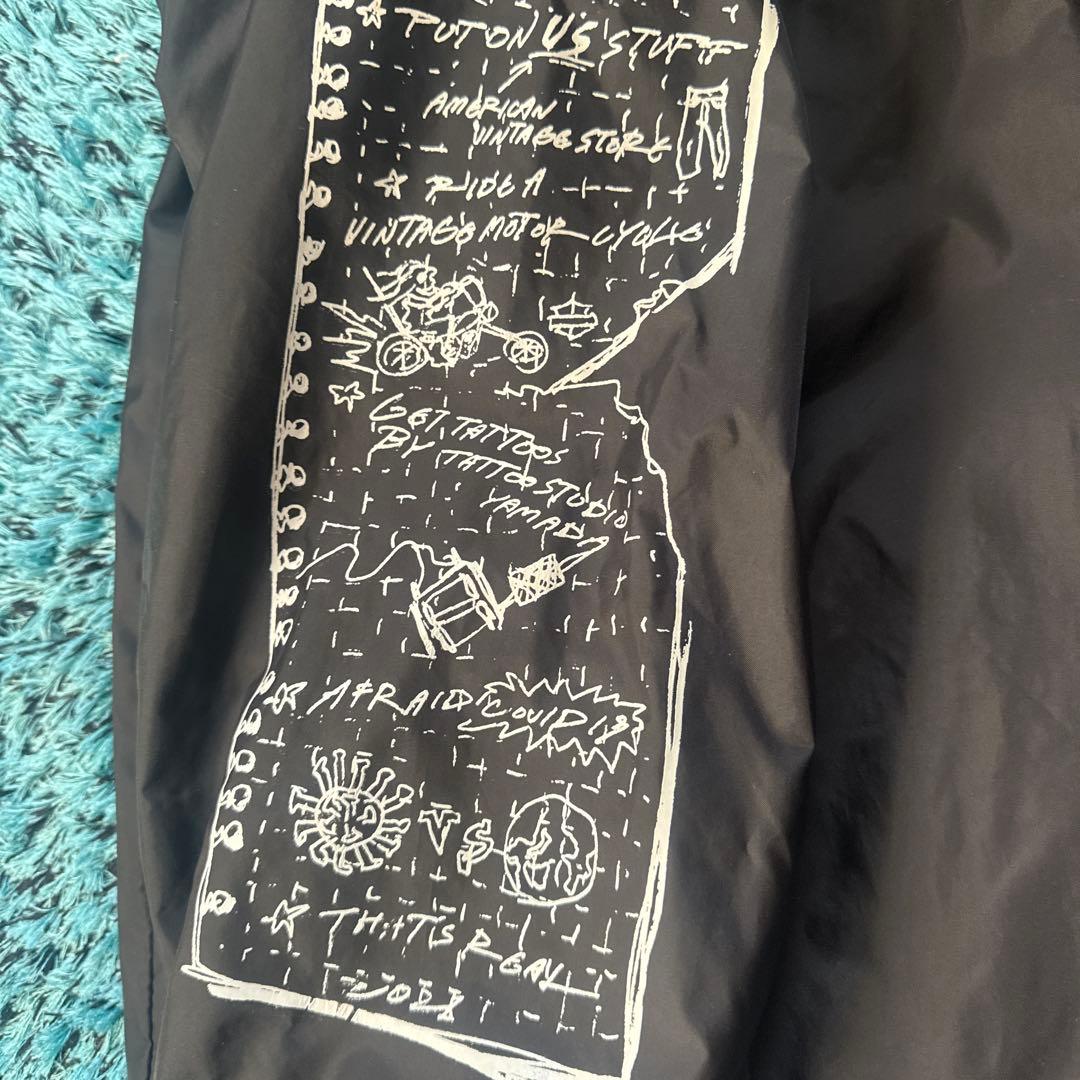 PUT ON US STUFF
AMERICAN
VINTAGE STORE
RIDE A
VINTAGE MOTOR CYCLE
GET TATTOOS
BY TATTOO STUDIO
YAMAD
AFRAID COVID 19
VS
THAT'S REALLY